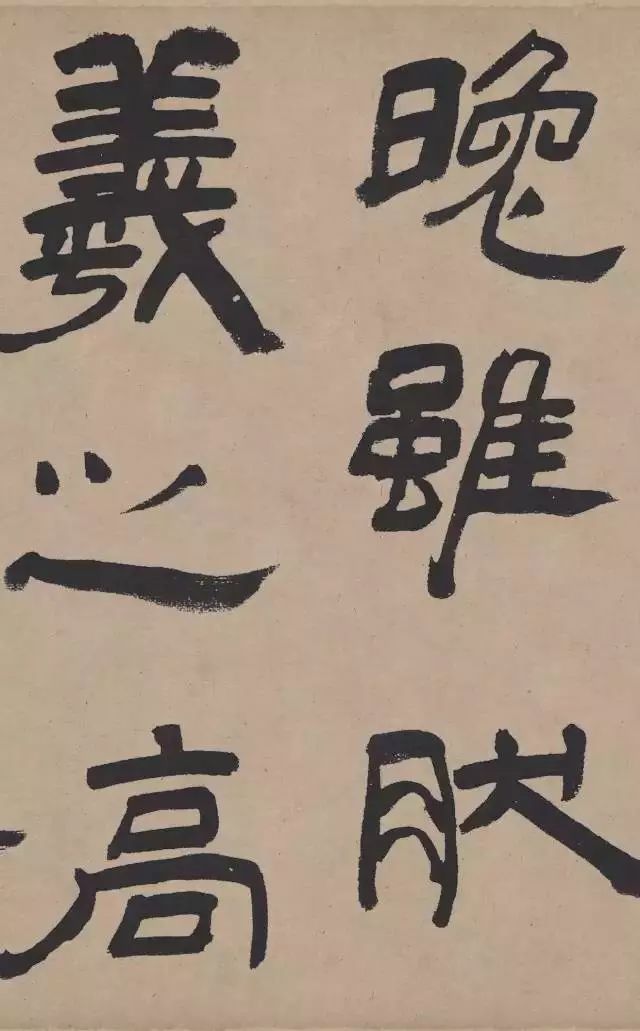 晚雖肰
羲之高